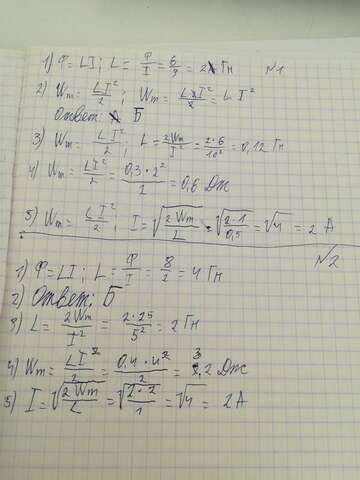 1) Ф=LI; L= Ф/I = 6/3 = 2 Гн №1
2) Wm = LI²/2; Wm = LI²/2 = L I²
Ответ: Б
3) Wm = LI²/2; L = 2Wm/I² = 2·6/10² = 0,12 Гн
4) Wm = LI²/2 = 0,3·2²/2 = 0,6 Дж
5) Wm = LI²/2; I = √2Wm/L = √2·1/0,5 = √4 = 2 А
№2
1) Ф=LI; L= Ф/I = 8/2 = 4 Гн
2) Ответ: Б
3) L = 2Wm/I² = 2·25/5² = 2 Гн
4) Wm = LI²/2 = 0,4·4²/2 = 3,2 Дж
5) I = √2Wm/L = √2·2/1 = √4 = 2А